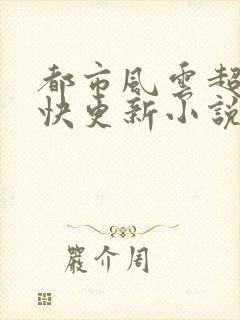 都市風雲超
快更新小說
嚴介周